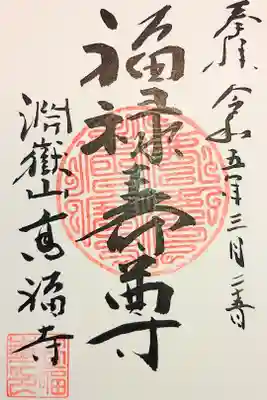 奉拝 令和五年三月二十五日
福禄寿尊
淵嶽山高福寺